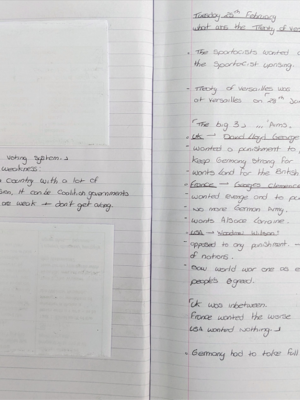 voting system.
weakness
a country with a lot of
it can be coalition governments
are weak + don't get along.
Tuesday 25th February
what was the Treaty of
- The Spartacists wanted
the Spartacist uprising.
- Treaty of Versailles was
at Versailles on 28th
"The big 3" Aims.
- UK → David Lloyd George
- wanted a punishment to
keep Germany strong for
- wants land for the British
- France → Georges
- wanted revenge and to
- no more German Army.
- wants Alsace Loraine.
- USA → Woodrow Wilson
- opposed to any punishment.
of nations.
- Saw world war one as
people's greed.
UK was inbetween.
France wanted the worse
USA wanted nothing
- Germany had to take full